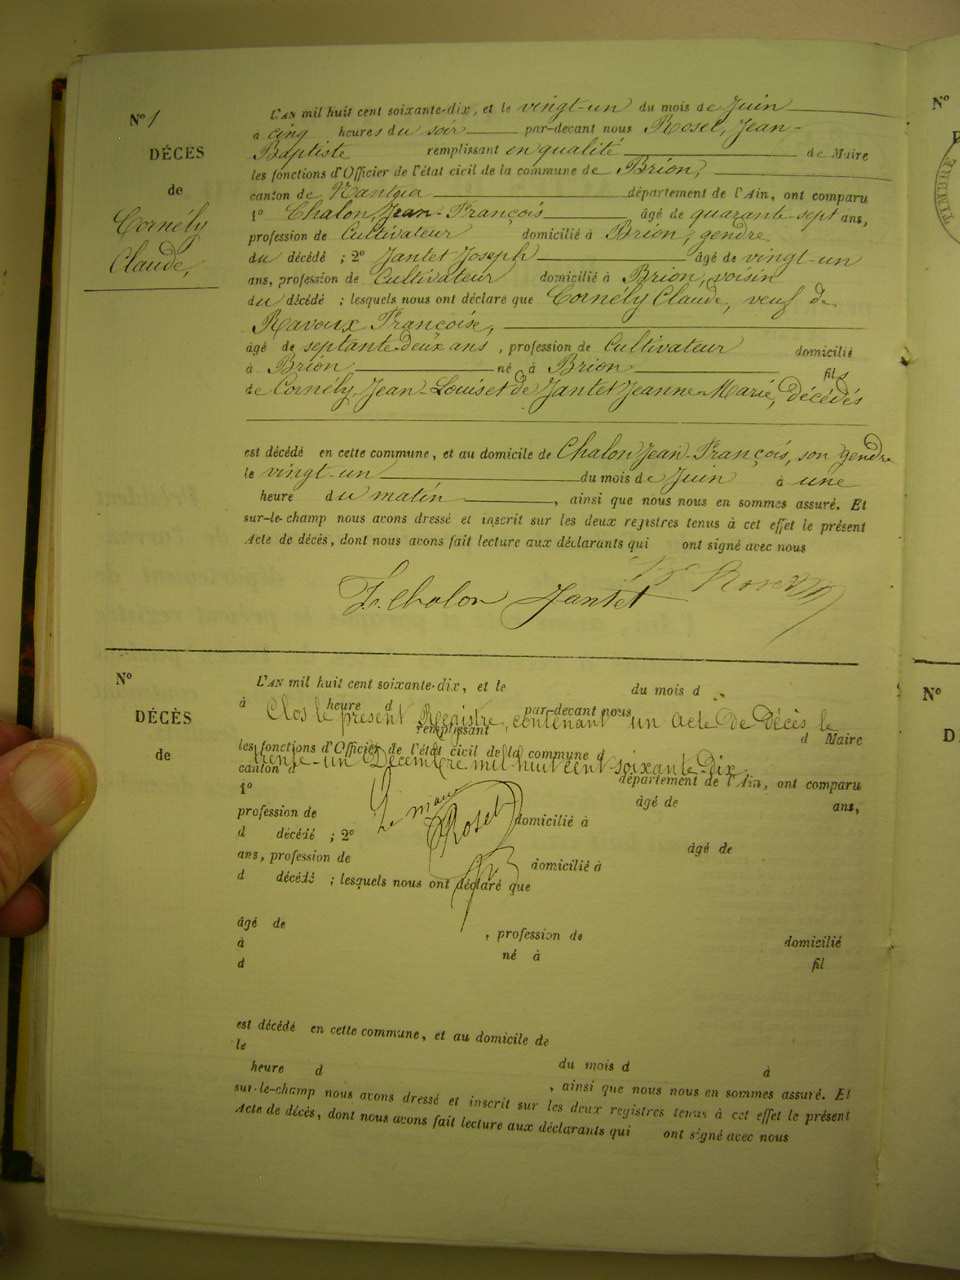 N° 1
DÉCES
de
Cornély
Claude,
L'AN mil huit cent soixante-dix, et le vingt-un du mois de Juin
à cinq heures du soir par-devant nous Rosel, Jean-
Baptiste remplissant en qualité de Maire
les fonctions d'Officier de l'état civil de la commune de Brion,
canton de Nantua département de l'Ain, ont comparu
1° Chalon, Jean-François âgé de quarante-sept ans,
profession de Cultivateur domicilié à Brion, gendre
du décédé ; 2° Jantet Joseph âgé de vingt-un
ans, profession de Cultivateur domicilié à Brion, voisin
du décédé ; lesquels nous ont déclaré que Cornély Claude, veuf de
Ravoux Françoise,
âgé de septante-deux ans, profession de Cultivateur domicilié
à Brion né à Brion fils
de Cornély, Jean-Louis et de Jantet Jeanne-Marie, décédés
est décédé en cette commune, et au domicile de Chalon Jean-François, son gendre
le vingt-un du mois de Juin à une
heure du matin, ainsi que nous nous en sommes assuré. Et
sur-le-champ nous avons dressé et inscrit sur les deux registres tenus à cet effet le présent
Acte de décès, dont nous avons fait lecture aux déclarants qui ont signé avec nous
F. Chalon Jantet Rosel
N°
DÉCÈS
de
L'AN mil huit cent soixante-dix, et le du mois d
à heure d par-devant nous
Clos le présent Registre, contenant un acte de décès le
remplissant d Maire
les fonctions d'Officier de l'état civil de la commune d
trente-un Décembre mil huit cent soixante-dix
canton d département de l'Ain, ont comparu
1° âgé de ans,
Le maire
profession de domicilié à
Rosel
d décédé ; 2° âgé de
ans, profession de domicilié à
d décédé ; lesquels nous ont déclaré que
âgé de , profession de domicilié
à né à fil
d
est décédé en cette commune, et au domicile de
le du mois d à
heure d , ainsi que nous nous en sommes assuré. Et
sur-le-champ nous avons dressé et inscrit sur les deux registres tenus à cet effet le présent
Acte de décès, dont nous avons fait lecture aux déclarants qui ont signé avec nous
N°
N°
D